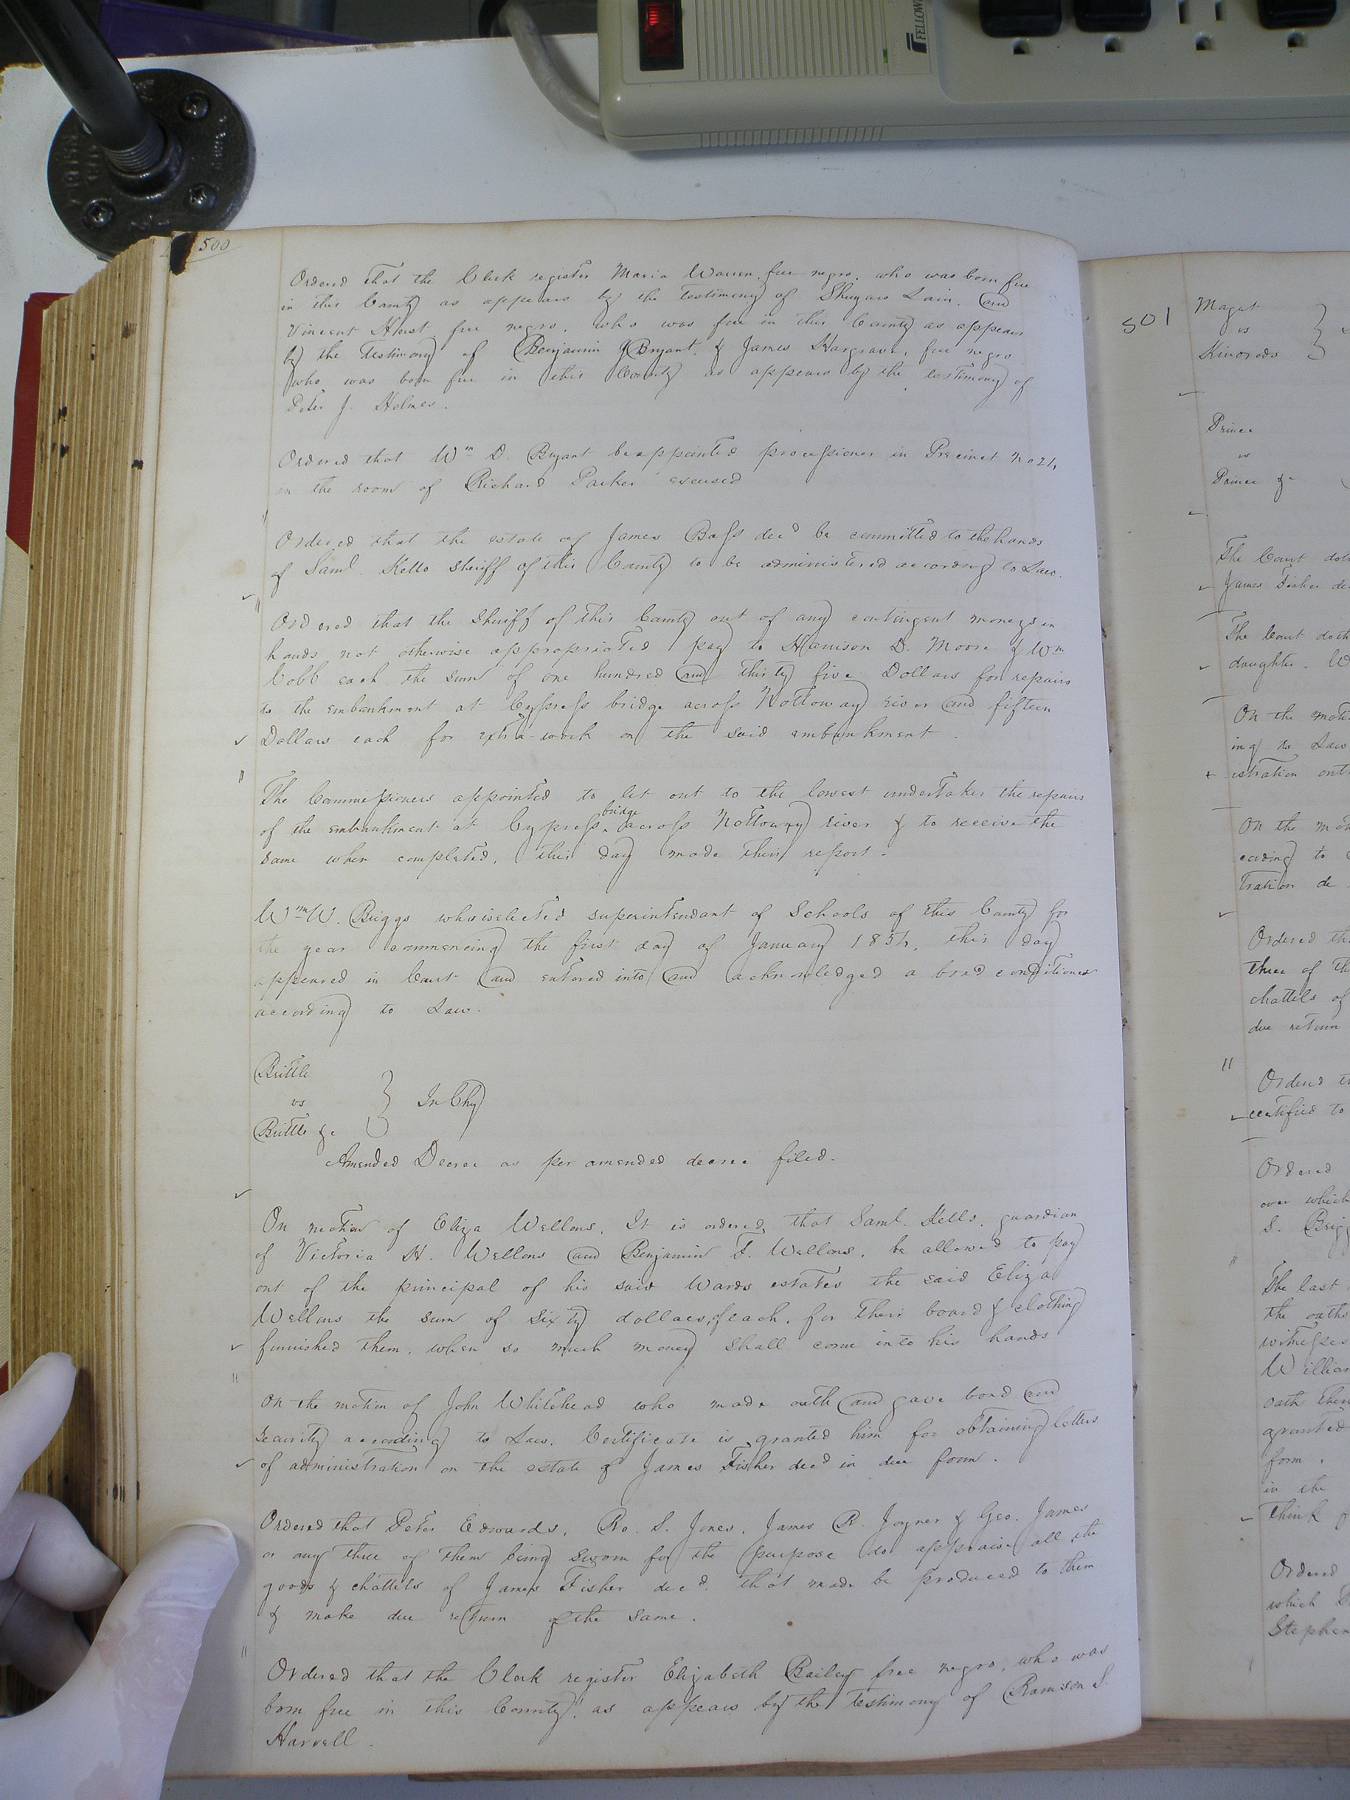 FELLOW
500
Ordered that the Clerk register Maria Warren, free negro, who was born free
in this County as appears by the testimony of Shugars Lain, and
Vincent Hurst free negro, who was free in this County as appears
by the testimony of Benjamin J Bryant, & James Hargrave, free negro
who was born free in this County as appears by the testimony of
Peter J. Holmes.
Ordered that Wm D. Bryant be appointed processioner in Precinct No 24,
in the room of Richard Parker excused
Ordered that the estate of James Bass decd be committed to the hands
of Saml. Kello Sheriff of this County to be administered according to Law.
Ordered that the Sheriff of this County out of any contingent moneys in
hands not otherwise appropriated pay to Harrison D. Moore & Wm
Cobb each the sum of one hundred and thirty five Dollars for repairs
to the embankment at Cypress bridge across Nottoway river and fifteen
Dollars each for extra-work on the said embankment.
The Commissioners appointed to let out to the lowest undertaker the repairs
of the embankment at Cypress bridge across Nottoway river & to receive the
same when completed, this day made their report.
Wm W. Briggs who is elected superintendant of Schools of this County for
the year commencing the first day of January 1854, this day
appeared in Court and entered into and acknowledged a bond conditioned
according to Law.
Brittle
vs
Brittle &c
} In Chy
Amended Decree as per amended decree filed.
On motion of Eliza Wellons, It is ordered that Saml. Kello, guardian
of Victoria H. Wellons and Benjamin F. Wellons, be allowed to pay
out of the principal of his said Wards estates the said Eliza
Wellons the sum of sixty dollars, each, for their board & clothing
furnished them, when so much money shall come into his hands
On the motion of John Whitehead who made oath and gave bond and
security according to Law, Certificate is granted him for obtaining letters
of administration on the estate of James Fisher decd in due form.
Ordered that Peter Edwards, Ro. S. Jones, James R. Joyner & Geo. James
or any three of them being sworn for the purpose do appraise all the
goods & chattels of James Fisher decd. that made be produced to them
& make due return of the same.
Ordered that the Clerk register Elizabeth Bailey free negro, who was
born free in this County, as appears by the testimony of Ramson S.
Harrell.
501
Maget
vs
Kindred
Prince
vs
Prince &c
The Court doth
James Fisher de
The Court doth
daughter. W
On the moti
ing to Law
istration
On the mo
cording to
tration de
Ordered th
three of th
chattels of
due return
Ordered th
certified to
Ordered
over which
S. Brig
The last
the oaths
witnesses
William
oath
granted
form.
in the
think
Ordered
which
Stephen